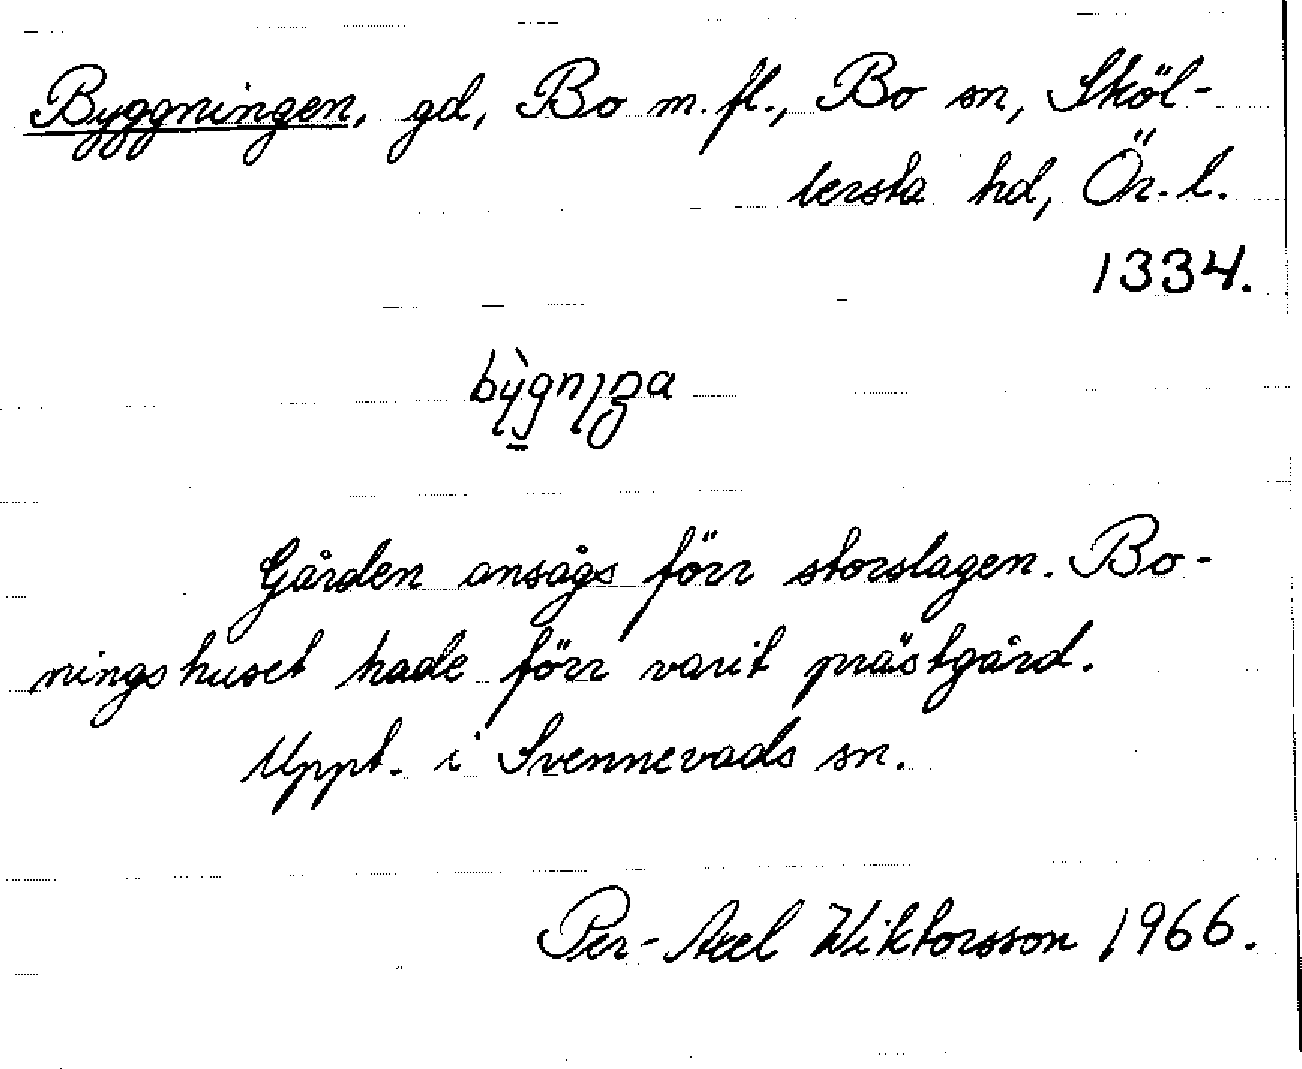 Byggningen, gd, Bo m. fl., Bo sn, Sköl-
lersta hd, Ör. l.
1334.
Gården ansågs förr storslagen. Bo-
ningshuset hade förr varit prästgård.
Uppt. i Svennevads sn.
Per-Axel Wiktorsson 1966.